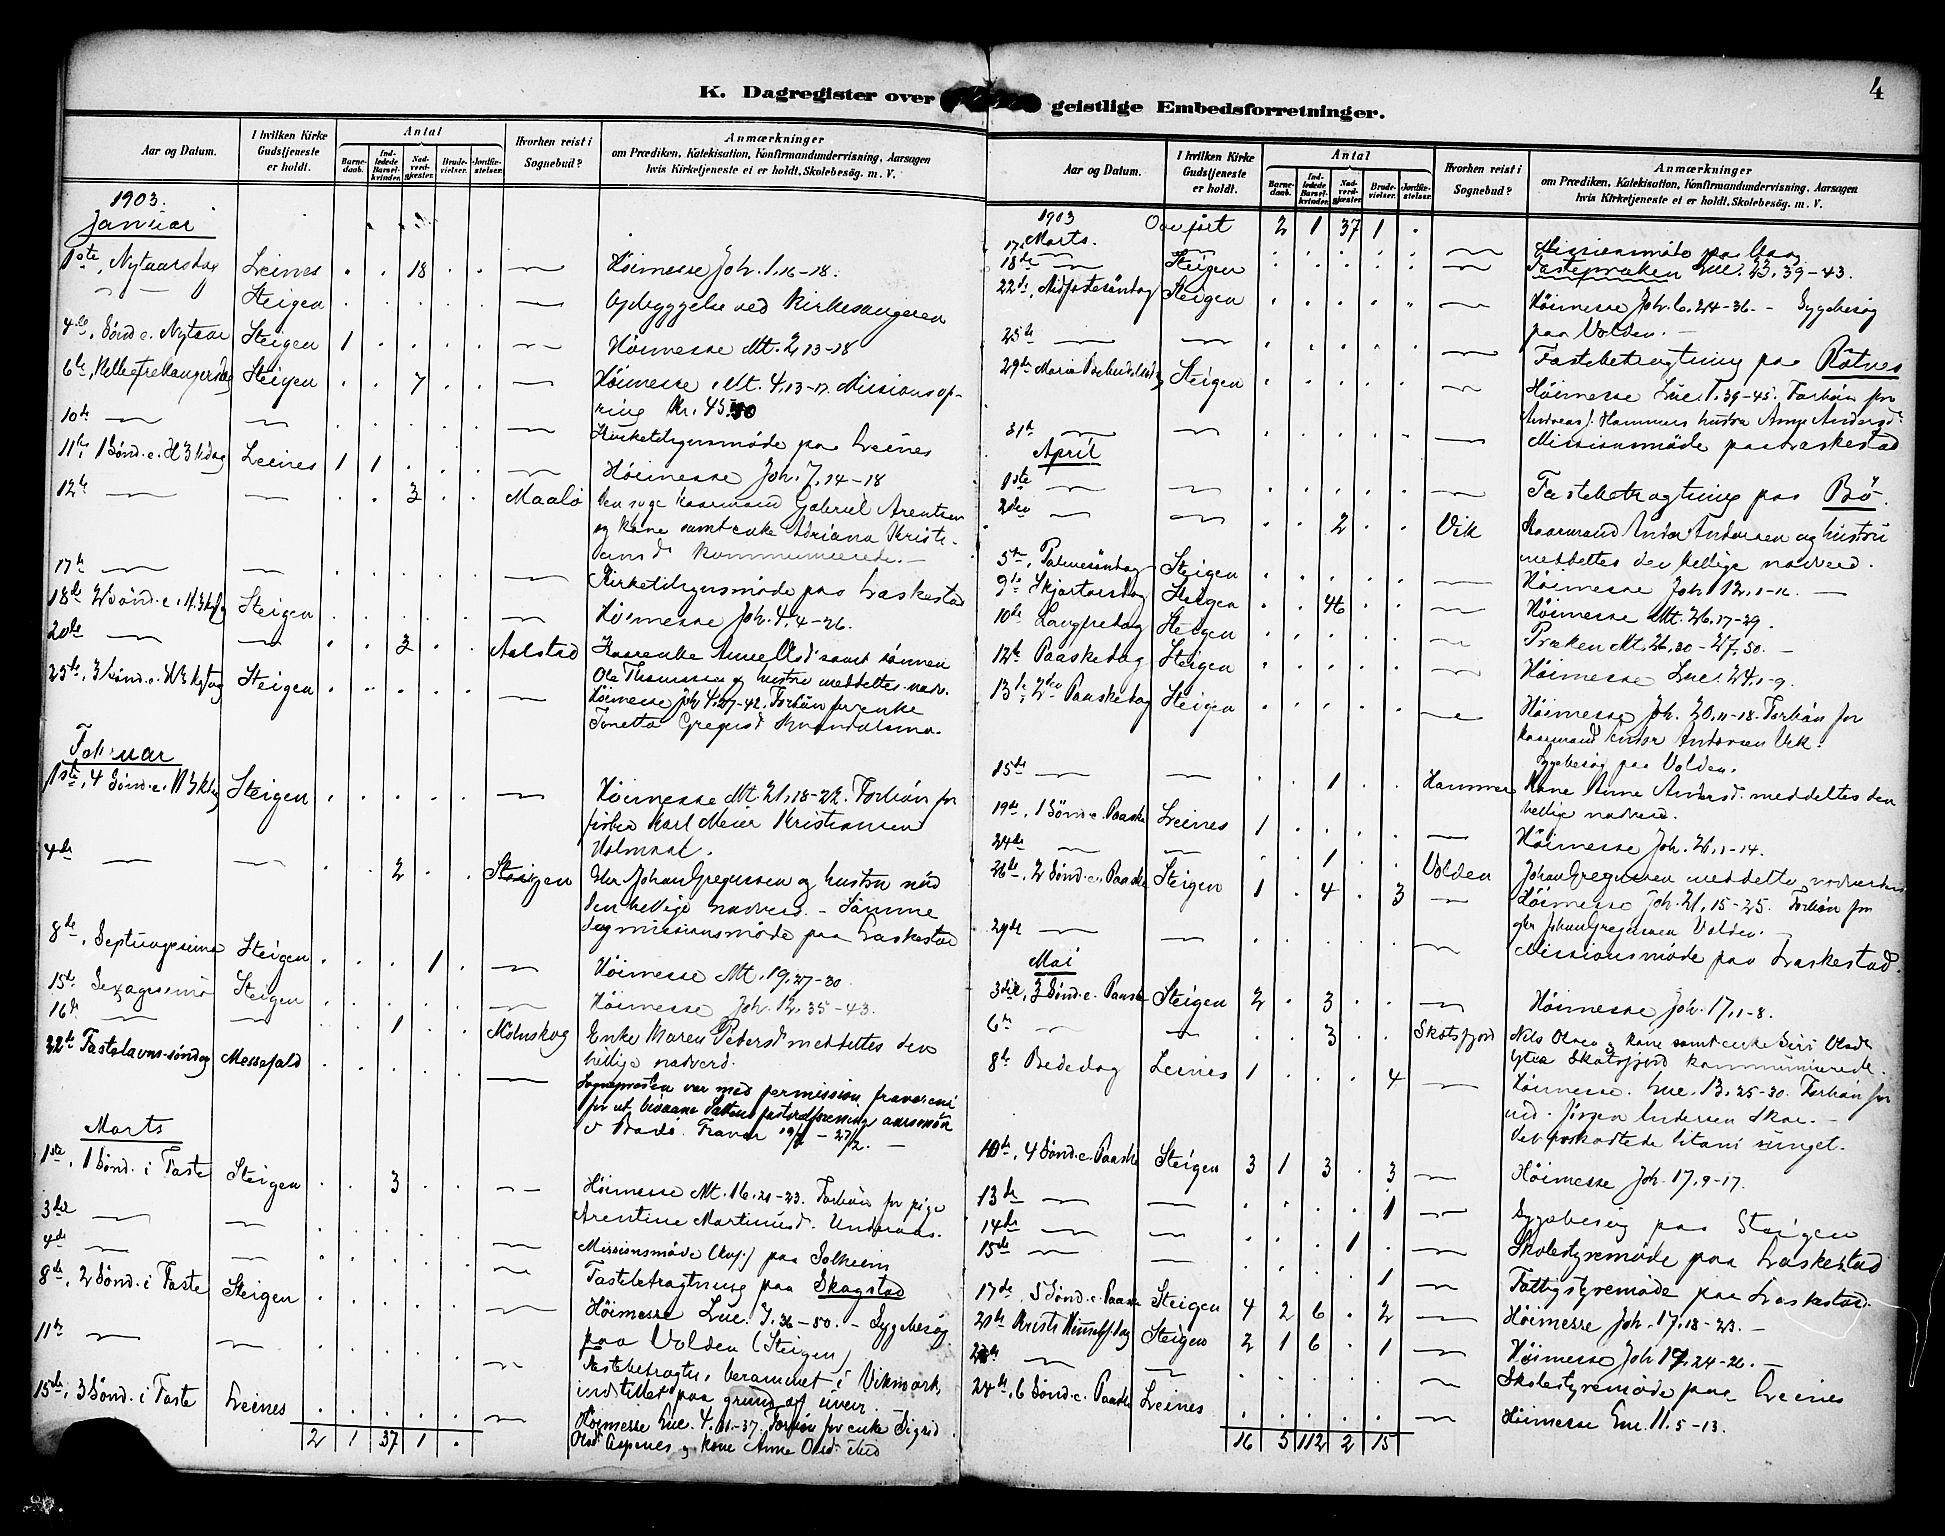 4
K. Dagregister over geistlige Embedsforretninger.
Aar og Datum.
I hvilken Kirke Gudstjeneste er holdt.
Antal
Barne-daab.
Ind-ledede Barsel-kvinder.
Nad-verd-gjester.
Brude-vielser.
Jordfæ-stelser.
Hvorhen reist i Sognebud?
Anmærkninger
om Prædiken, Katekisation, Konfirmandundervisning, Aarsagen
hvis Kirketjeneste ei er holdt, Skolebesög. m. V.
1903.
Januar
1ste, Nytaarsdag Leines . . 18 . . — Höimesse Joh. 1, 16-18.
— Steigen . . . . . — Opbyggelse ved Kirkesangeren
4de, Sönd. e. Nytaar Steigen 1 . . . . — Höimesse Mt. 2, 13-18
6te, Steigen . . 7 . . — Höimesse, Mt. 4, 13-17. Missionsop-
ring Kr. 45.50
10de — — . . . . . — Kirketilsynsmöde paa Leines
11te, 1 Sönd. e. H3kdag Leines 1 1 . . . — Höimesse Joh. 7, 14-18
12te — — . . 3 . . Maalö Den syge kaarmand Gabriel Arentsen
og kone samt enke Adriana Kristi-
ansd. kommunicerede. —
17de — — . . . . . — Kirketilsynsmöde paa Laskestad
18de 2 Sönd. e. H3kdg Steigen . . . . . — Höimesse Joh. 4, 4-26.
20de — — . . 3 . . Aalstad Kaarenke Anne Olsd. samt sönnen
Ole Thomassen og hustru meddeltes nadv.
25de, 3 Sönd. e. H3kdag Steigen . . . . . — Höimesse Joh. 4, 27-42. Forbön for enke
Tonetta Gregersd.
Februar
1ste, 4 Sönd. e. H3kdg Steigen . . . . . — Höimesse Mt. 21, 18-22. Forbön for
Karl Meier Kristiansen
Holmaak.
4de — — . . 2 . . Steigen Johan Gregussen og hustru nöd
den hellige nadverd. – Samme
dag missionsmöde paa Laskestad
8de, Septuagesima Steigen . . . 1 . — Höimesse Mt. 19, 27-30.
15de Sexagesima Steigen . . . . . — Höimesse Joh. 12, 35-43.
16de — — . . 1 . . Holmskog Enke Maren Pedersd. meddeltes den
hellige nadverd.
22de Fastelavns-söndag Messefald . . . . . — Sognepresten var med permission fraværende
for at bivaane
Fravær 19/2 – 27/2. —
Marts
1ste, 1 Sönd. i Faste Steigen . . 3 . . — Höimesse Mt. 16, 21-23. Forbön for pige
Arentine Martinusd.
3die — — . . . . . — Missionsmöde paa Solheim
4de — — . . . . . — Fastebetragtning paa Skagstad
8de, 2 Sönd. i Faste Steigen . . . . . — Höimesse Luc. 7, 36-50. – Sygebesög
paa Volden (Steigen)
11te — — . . . . . — Fastebetragtn. berammet i Vikmark
indstillet paa grund af uveir.
15de, 3 Sönd. i Faste Leines . . . . . — Höimesse Luc. 4, 31-37. Forbön for enke Sigrid
Olsd. Aspenes og kone Anne Olsd.
2 1 37 1 .
Aar og Datum.
I hvilken Kirke Gudstjeneste er holdt.
Antal
Barne-daab.
Ind-ledede Barsel-kvinder.
Nad-verd-gjester.
Brude-vielser.
Jordfæ-stelser.
Hvorhen reist i Sognebud?
Anmærkninger
om Prædiken, Katekisation, Konfirmandundervisning, Aarsagen
hvis Kirketjeneste ei er holdt, Skolebesög. m. V.
1903 Overfört 2 1 37 1 .
17. Marts. . . . . . — Missionsmöde paa
18de — Steigen . . . . . — Fastepræken Luc. 23, 39-43.
22de, Midfastesöndag Steigen . . . . . — Höimesse Joh. 6, 24-36. – Sygebesög
paa Volden. –
25de — — . . . . . — Fastebetragtning paa Rötnes
29de Maria Bebudelsesdag Steigen . . . . . — Höimesse Luc. 1, 39-45. Forbön for
Andreas J. Hammers hustru Anne Andersd.
31te — — . . . . . — Missionsmöde paa Laskestad
April
1ste — — . . . . . — Fastebetragtning paa Bö.
2den — — . . 2 . . Vik Kaarmand Andor Andersen og hustru
meddeltes den hellige nadverd.
5te, Palmesöndag Steigen . . . . . — Höimesse Joh. 12, 1-16. —
9de Skjærtorsdag Steigen . . 46 . . — Höimesse Mt. 26, 17-29.
10de Langfredag Steigen . . . . . — Præken Mt. 26, 30 – 27, 50. –
12te Paaskedag Steigen . . . . . — Höimesse Luc. 24, 1-9.
13de 2den Paaskedag Steigen . . . . . — Höimesse Joh. 20, 11-18. Forbön for
kaarmand Andor Andersen Vik.
Sygebesög paa Volden.
15de — — . . 1 . . Hammer Kone Anne Andersd. meddeltes den
hellige nadverd.
19de, 1 Sönd. e. Paaske Leines 1 . . . . — Höimesse Joh. 20, 1-14.
24de — — . . 1 . . Volden Johan Gregussen meddeltes nadverden
26de, 2 Sönd. e. Paaske Steigen 1 . 4 . 3 — Höimesse Joh. 21, 15-25. Forbön for
gbr Johan Gregussen Volden.
29de — — . . . . . — Missionsmöde paa Laskestad.
Mai
3die, 3 Sönd. e. Paaske Steigen 2 . 3 . . — Höimesse Joh. 17, 1-8.
6te — — . . 3 . . Skotsfjord Nils Olsen og kone samt enke Siri Olsd.
ytre Skotsfjord kommunicerede.
8de Bededag Leines 1 . . . 4 — Höimesse. Luc. 13, 25-30. Forbön for
Jörgen Andersen
Det forkortede litani sunget.
10de, 4 Sönd. e. Paaske Steigen 3 1 3 . 3 — Höimesse Joh. 17, 9-17.
13de — — . . . . 1 — Sygebesög paa Steigen
14de — — . . . 1 . — Skolestyremöde paa Laskestad
15de — — . . . . 1 — Fattigstyremöde paa Laskestad.
17de, 5 Sönd. e. Paaske Steigen 4 2 6 . 2 — Höimesse Joh. 17, 18-23. –
21de Kristi Himmelf.dag Steigen 2 1 6 . 1 — Höimesse Joh. 17, 24-26. –
— — . . . . . — Skolestyremöde paa Leines
24de, 6 Sönd. e. Paaske Leines . . . . . — Höimesse Luc. 11, 5-13.
16 5 112 2 15